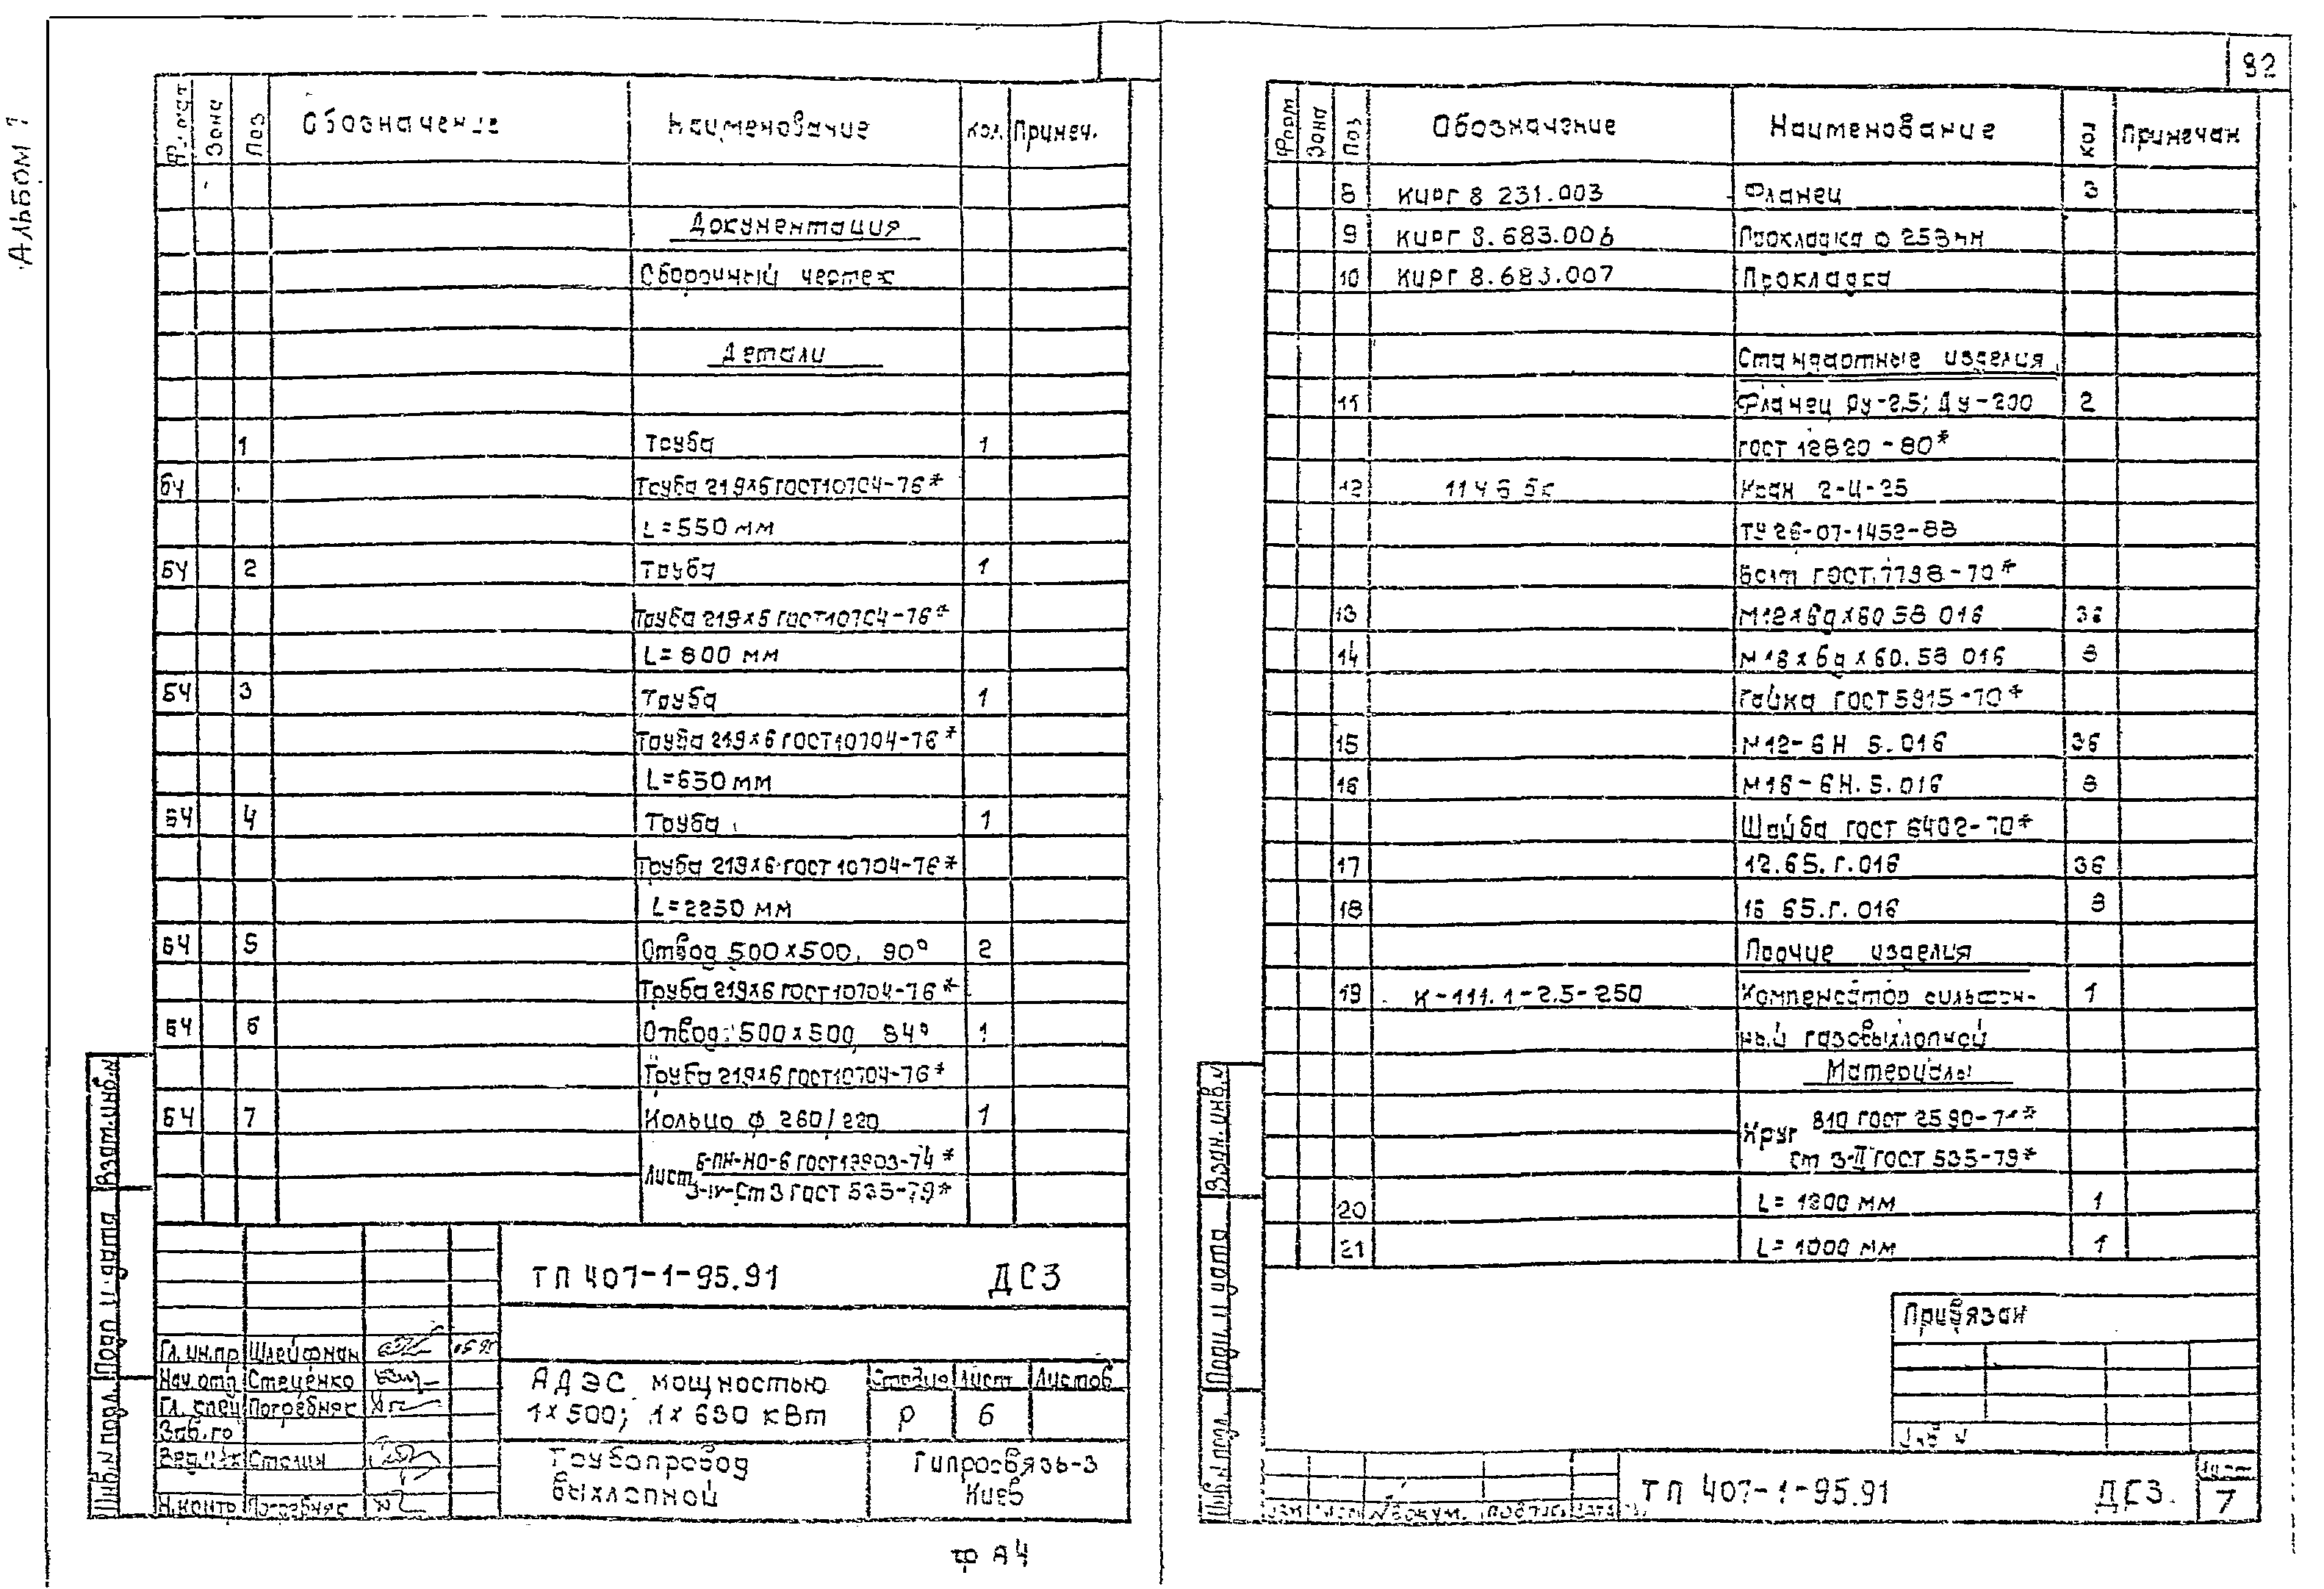 Альбом 1
92
Формат Зона Поз. Обозначение Наименование Кол. Примеч.
Документация
Сборочный чертеж
Детали
1 Труба 1
БЧ Труба 219×6 ГОСТ 10704-76*
L=550 мм
БЧ 2 Труба 1
Труба 219×6 ГОСТ 10704-76*
L=800 мм
БЧ 3 Труба 1
Труба 219×6 ГОСТ 10704-76*
L=650 мм
БЧ 4 Труба 1
Труба 219×6 ГОСТ 10704-76*
L=2250 мм
БЧ 5 Отвод 500×500, 90° 2
Труба 219×6 ГОСТ 10704-76*
БЧ 6 Отвод 500×500, 84° 1
Труба 219×6 ГОСТ 10704-76*
БЧ 7 Кольцо ф 260/220 1
Лист Б-ПН-НО-6 ГОСТ 19903-74*
3-IV-Ст3 ГОСТ 535-79*
ТП 407-1-95.91 ДС3
Гл. инж.пр Шлейфман
Нач. отд Стеценко
Гл. спец Погребняк
Зав. гр
Вед. инж Сталин
Н. контр Погребняк
АДЭС мощностью
1×500; 1×630 кВт
Стадия Лист Листов
Р 6
Трубопровод
выхлопной
Гипросвязь-3
Киев
Взам. инв. N
Подп. и дата
Инв. N подл.
ф А4
Форм Зона Поз Обозначение Наименование Кол Примечан
8 КИРГ 8 231.003 Фланец 3
9 КИРГ 8.683.006 Прокладка
10 КИРГ 8.683.007 Прокладка
Стандартные изделия
11 Фланец Ру-2,5; Ду-200 2
ГОСТ 12820-80*
12 11Ч6 бк Кран 2-Ц-25
ТУ 26-07-1452-88
Болт ГОСТ 7798-70*
13 М12×6g×60 58 016 36
14 М16×6g×60.58 016 8
Гайка ГОСТ 5915-70*
15 М12-6Н 5.016 36
16 М16-6Н.5.016 8
Шайба ГОСТ 6402-70*
17 12.65.Г.016 36
18 16 65.Г.016 8
Прочие изделия
19 К-111.1-2.5-250 Компенсатор сильфон- 1
ный газовыхлопной
Материалы
Круг В10 ГОСТ 2590-71*
Ст 3-II ГОСТ 535-79*
20 L=1200 мм 1
21 L=1000 мм 1
Привязан
Инв N
ТП 407-1-95.91 ДС3.
Лист
7
Изм Лист N докум. Подпись Дата
Взам. инв. N
Подп. и дата
Инв. N подл.